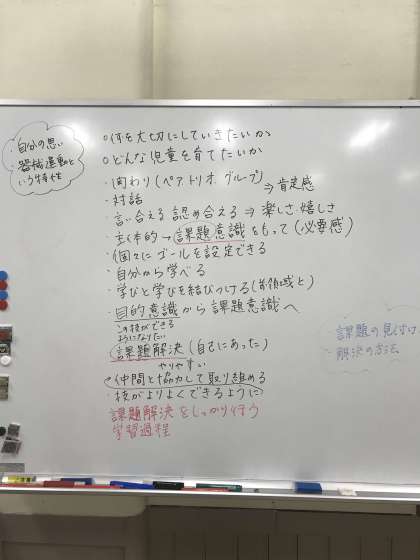 ・自分の思い
・器械運動と
いう特性
○何を大切にしていきたいか
○どんな児童を育てたいか
・関わり(ペアトリオ グループ)
⇒肯定感
・対話
・言い合える 認め合える ⇒ 楽しさ嬉しさ
・主体的→課題意識をもって(必要感)
・個々にゴールを設定できる
・自分から学べる
・学びと学びを結びつける(と)
・目的意識から課題意識へ
この技ができる
ようになりたい
・課題解決(自己にあった)
やりやすい
・仲間と協力して取り組める
・技がよりよくできるように
課題解決をしっかり行う
学習過程
課題の見付け
解決の方法